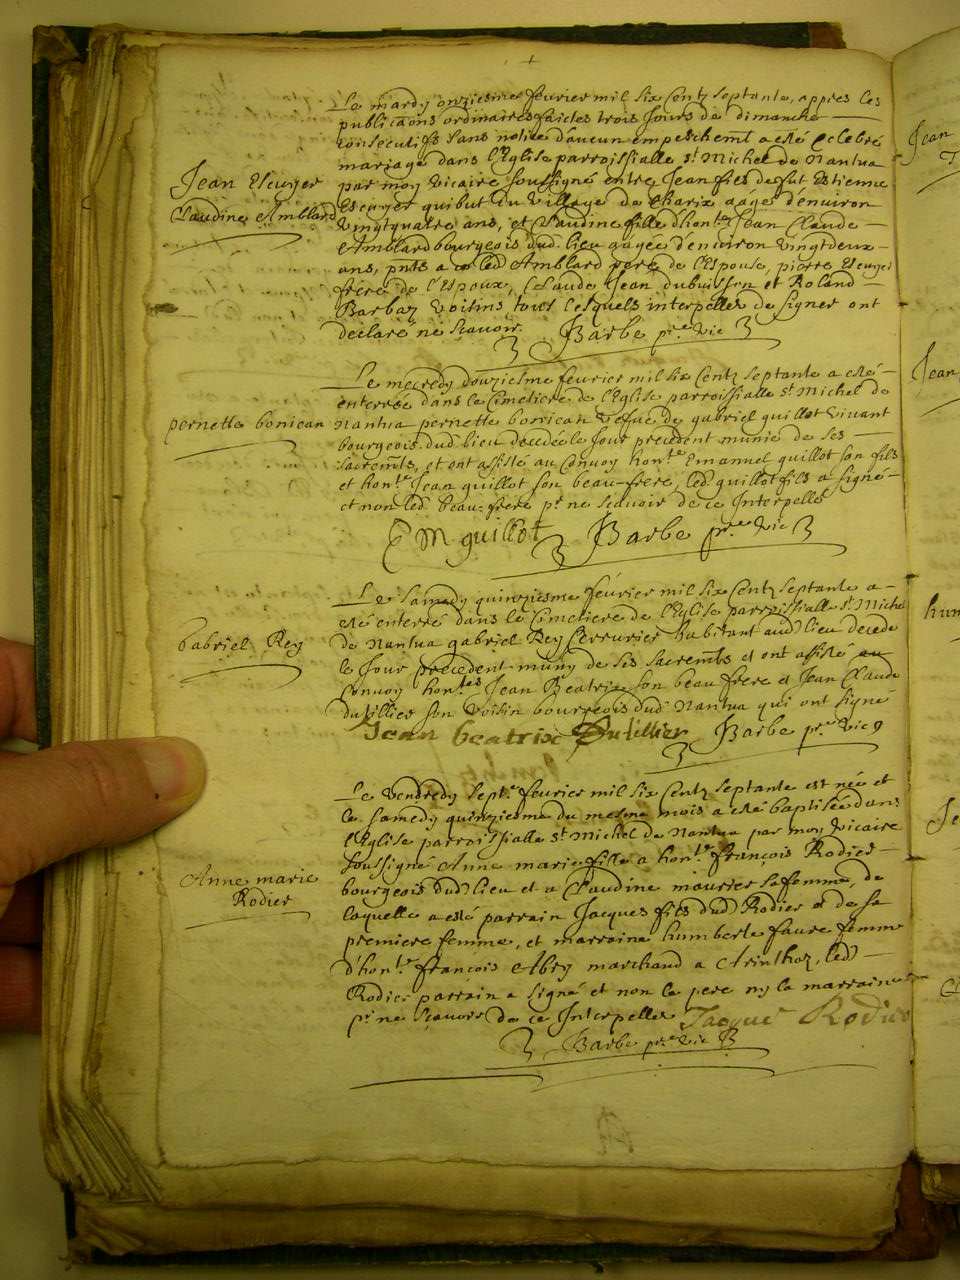 Le mardy onziesme feuvrier mil six centz septante, appres les
publicaõns ordinaires faictes trois Jours de dimanche
consecutifs sans notice d'aucun empeschemt a esté celebré
mariage dans l'Eglise parroissialle st Michel de Nantua
Jean Escuyer
Claudine Amblard
par moy vicaire soussigné entre Jean fils de fut Estienne
Escuyer qui fut du village de Charix aagé d'enuiron
vingtquatre ans, et Claudine fille d'honte Jean Claude
Amblard bourgeois dud. lieu aagée d'enuiron vingtdeux
ans, pnts a ce led Amblard pere de l'Espouse, pierre Escuyer
frere de l'Espoux, Claude Jean dubuisson et Roland
Barbaz voisins tous lesquels interpelles de signer ont
declaré ne sçauoir. Barbe pre vic
Le mecredy douziesme feuvrier mil six centz septante a esté
enterrée dans le Cimetiere de l'Eglise parroissialle st Michel de
pernette bonican
Nantua pernette bonican vefue de gabriel guillot viuant
bourgeois dud. lieu decedée le Jour precedent munie de ses
sacremts, et ont assisté au Conuoy honte Emanuel guillot son fils
et honte Jean guillot son beau-frere, led. guillot fils a signé
et non led. beau-frere pr ne sçauoir de ce Interpellé
E M guillot Barbe pre vic
Le Samedy quinziesme féurier mil six Centz septante a
esté enterré dans le Cimetiere de l'Eglise parroissialle st Michel
Gabriel Rey
de Nantua gabriel Rey serrurier habitant aud. lieu decede
le Jour precedent muny de ses sacremts et ont assisté au
Conuoy hontes Jean Beatrix son beau frere et Jean Claude
dutillier son voisin bourgeois dud. Nantua qui ont signé
Jean beatrix Dutillier Barbe pre vic
Le vendredy septe feurier mil six Centz septante est née et
le samedy quinziesme du mesme mois a esté baptisée dans
l'Eglise parroissialle st Michel de Nantua par moy vicaire
Anne marie
Rodier
soussigné Anne marie fille a honte françois Rodier
bourgeois dud. lieu et a Claudine maurier sa femme, de
laquelle a esté parrain Jacques fils dud. Rodier et de sa
premiere femme, et marraine humberte faure femme
d'honte françois Abry marchand a Arinthoz, led.
Rodier parrain a signé et non le pere ny la marraine
pr ne sçauoir de ce Interpelles Jacque Rodier
Barbe pre vic
Jean
Jean
hum
Je